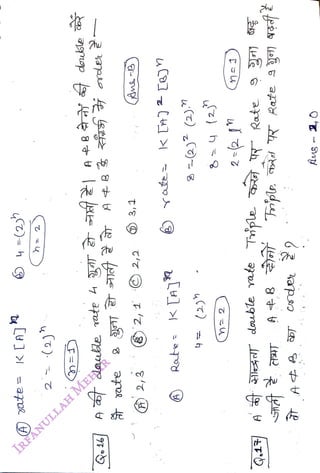 Ⓐ rate = K [A]ⁿ
2 = (2)ⁿ
n = 1
Ⓑ 4 = (2)ⁿ
n = 2
IRFANULLAH
Q.16 A की double rate 4 गुना हो जाती है। A & B दोनों की double करें
तो rate 8 गुना हो जाती है तो A & B के संदर्भ में order है —
Ⓐ 2,3 Ⓑ 2,1 Ⓒ 2,2 Ⓓ 3,1
Ans - B
Ⓐ Rate = K [A]ⁿ
4 = (2)ⁿ
n = 2
Ⓑ rate = K [A]² [B]ⁿ
8 = (2)² (2)ⁿ
8 = 4 (2)ⁿ
2 = (2)ⁿ
n = 1
Q.17 A की सान्द्रता double rate Triple करने पर Rate 9 गुना बढ़
जाती है तथा A & B दोनों Triple करने पर Rate 9 गुना बढ़ती है
तो A & B का order है?
Ans - 2,0